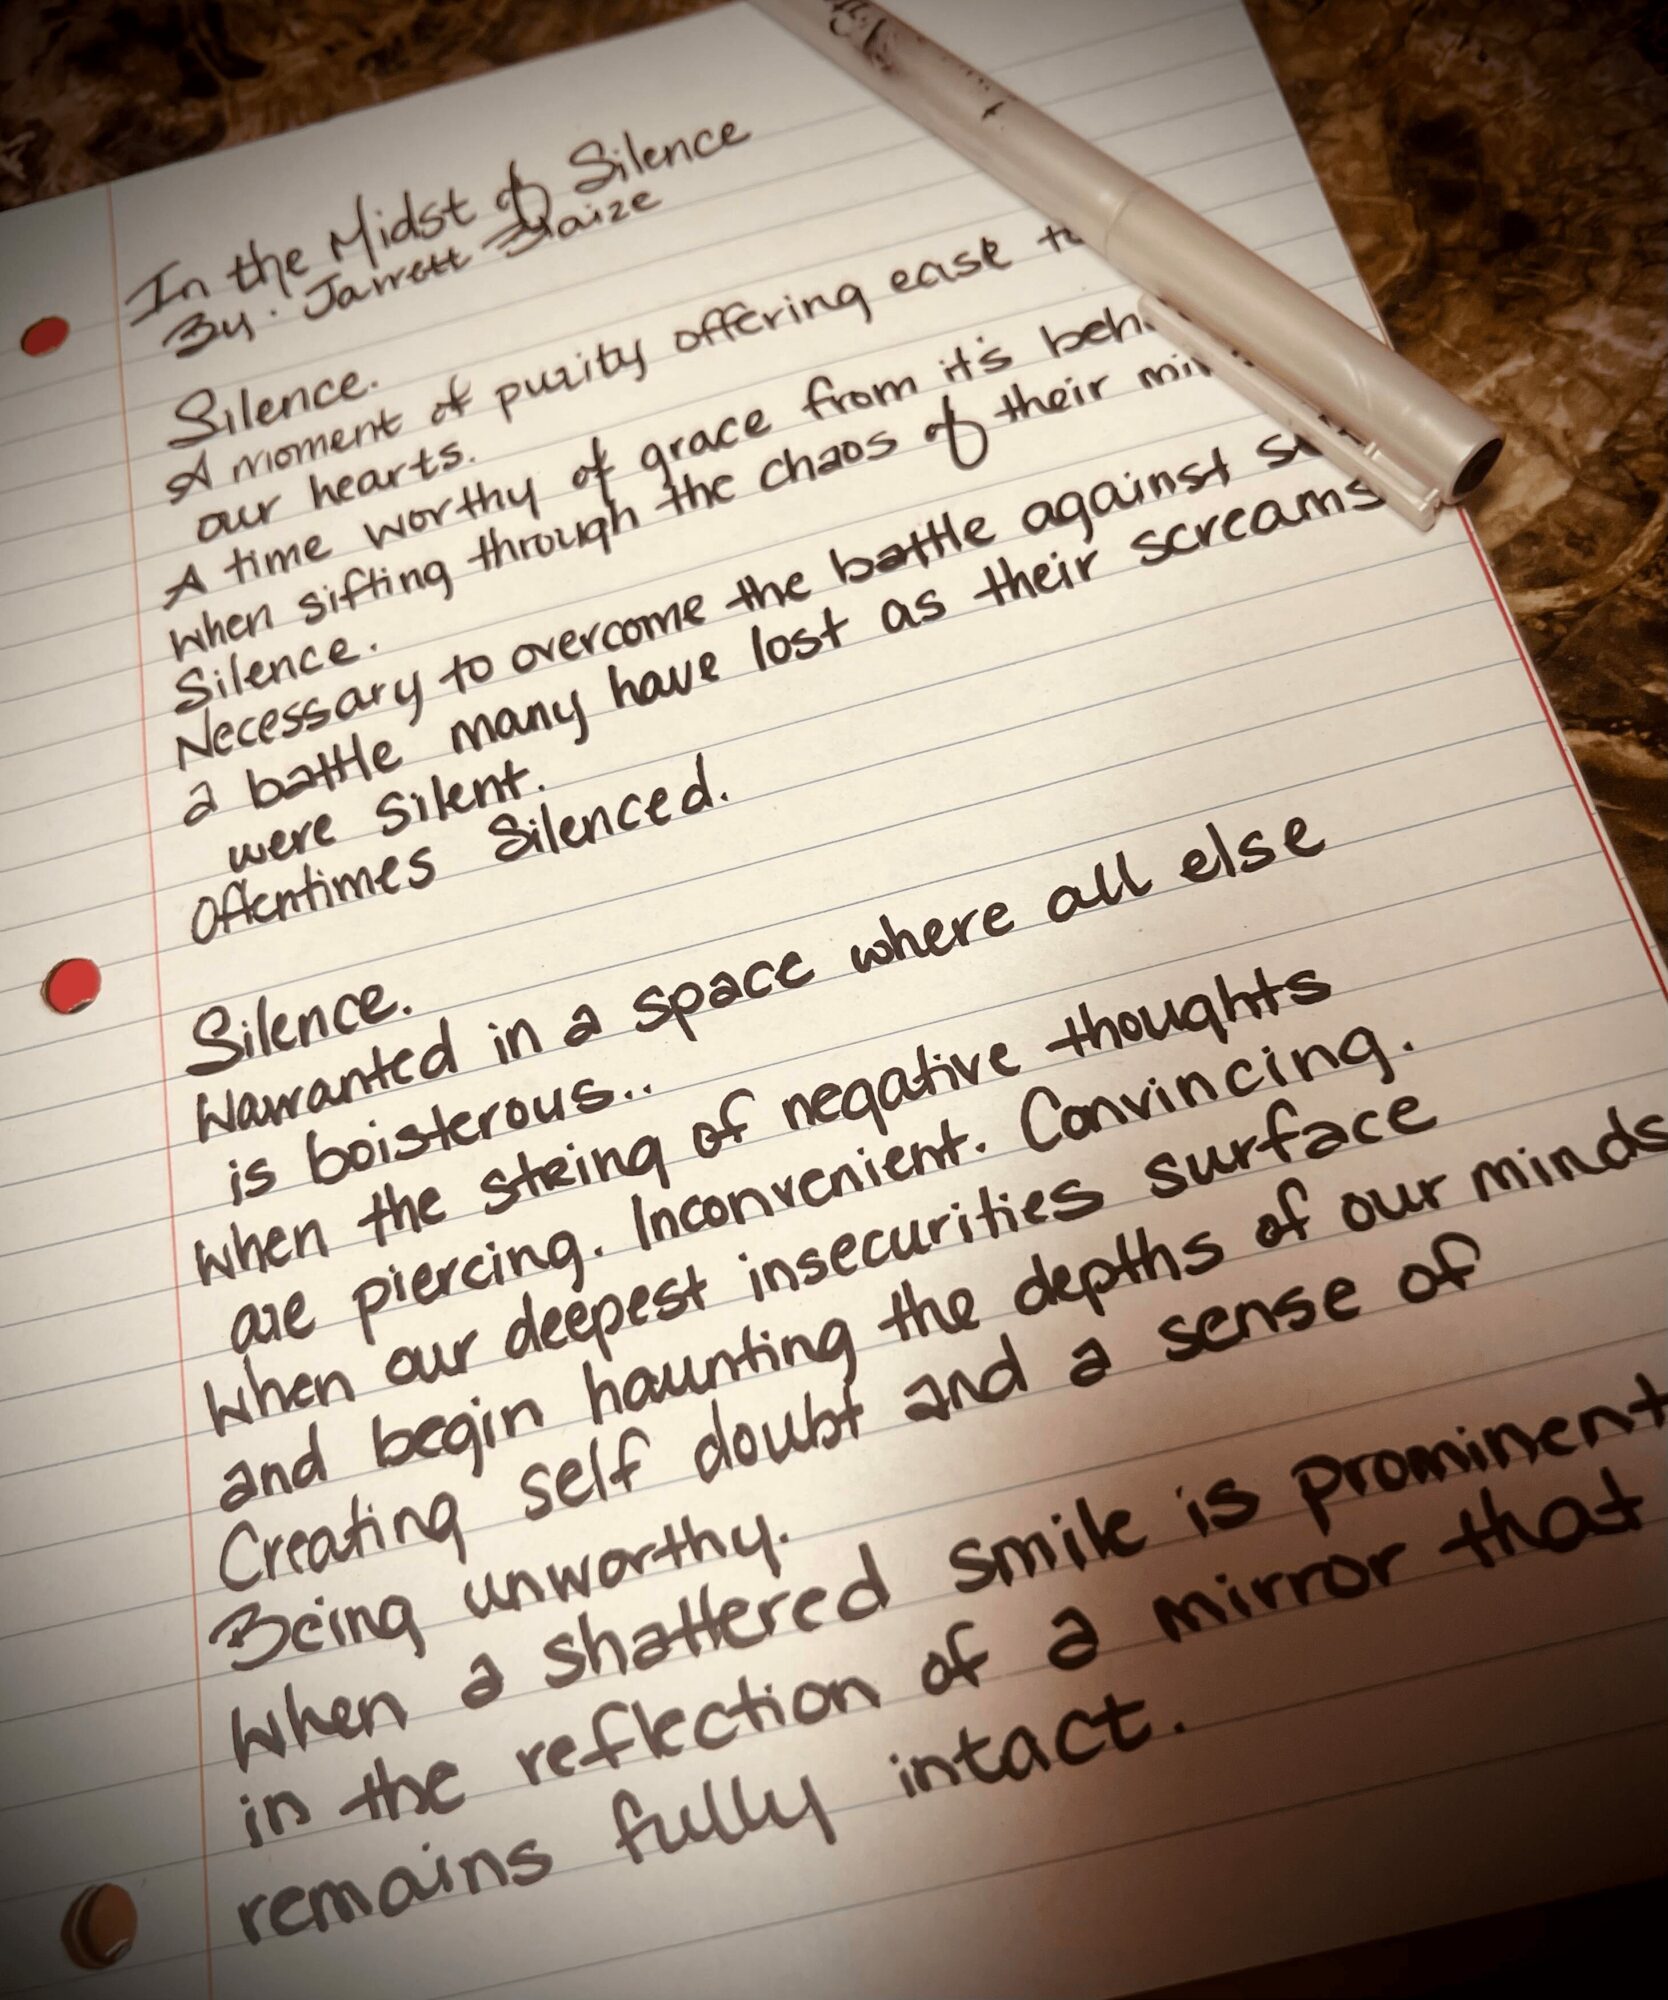 In the Midst of Silence
By: Jarrett Blaize
Silence.
A moment of purity offering ease to
our hearts.
A time worthy of grace from it's
when sifting through the chaos of their
Silence.
Necessary to overcome the battle against
a battle many have lost as their screams
were silent.
Oftentimes Silenced.
Silence.
Warranted in a space where all else
is boisterous..
when the string of negative thoughts
are piercing. Inconvenient. Convincing.
When our deepest insecurities surface
and begin haunting the depths of our minds
Creating self doubt and a sense of
Being unworthy.
When a shattered smile is prominent
in the reflection of a mirror that
remains fully intact.